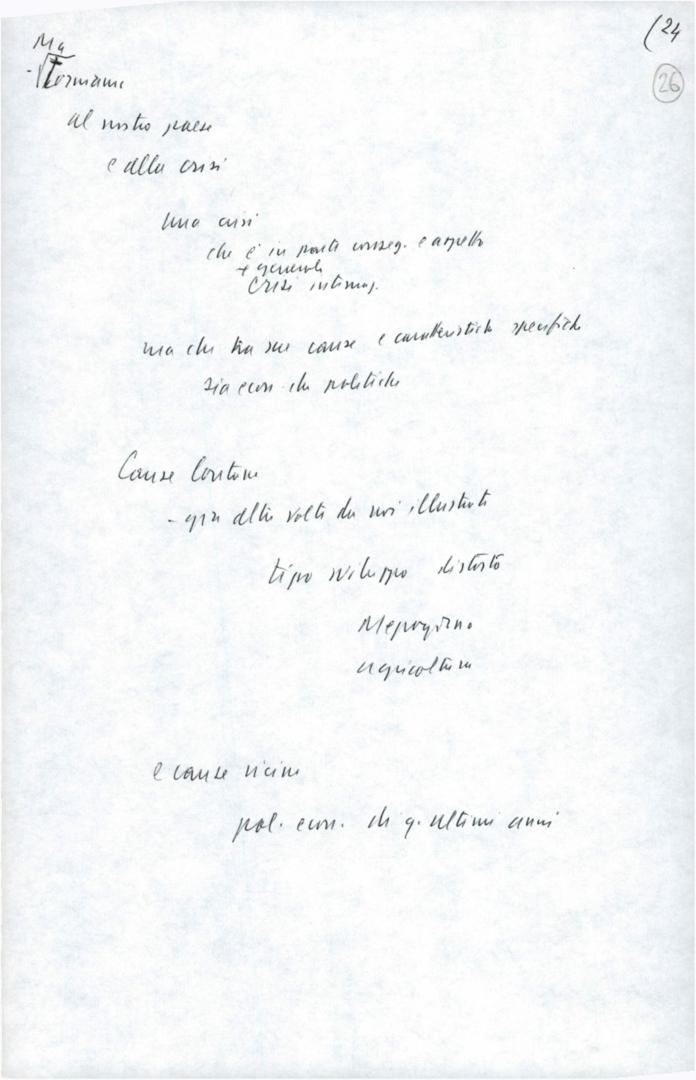 (24
26
Ma
- Torniamo
al nostro paese
e alla crisi
una crisi
che è in parte conseg. e aspetto
+ generale
crisi internaz.
ma che ha sue cause e caratteristiche specifiche
sia econ. che politiche
Cause lontane
- già altre volte da noi illustrate
tipo sviluppo distorto
Mezzogiorno
agricoltura
e cause vicine
pol. econ. di q. ultimi anni